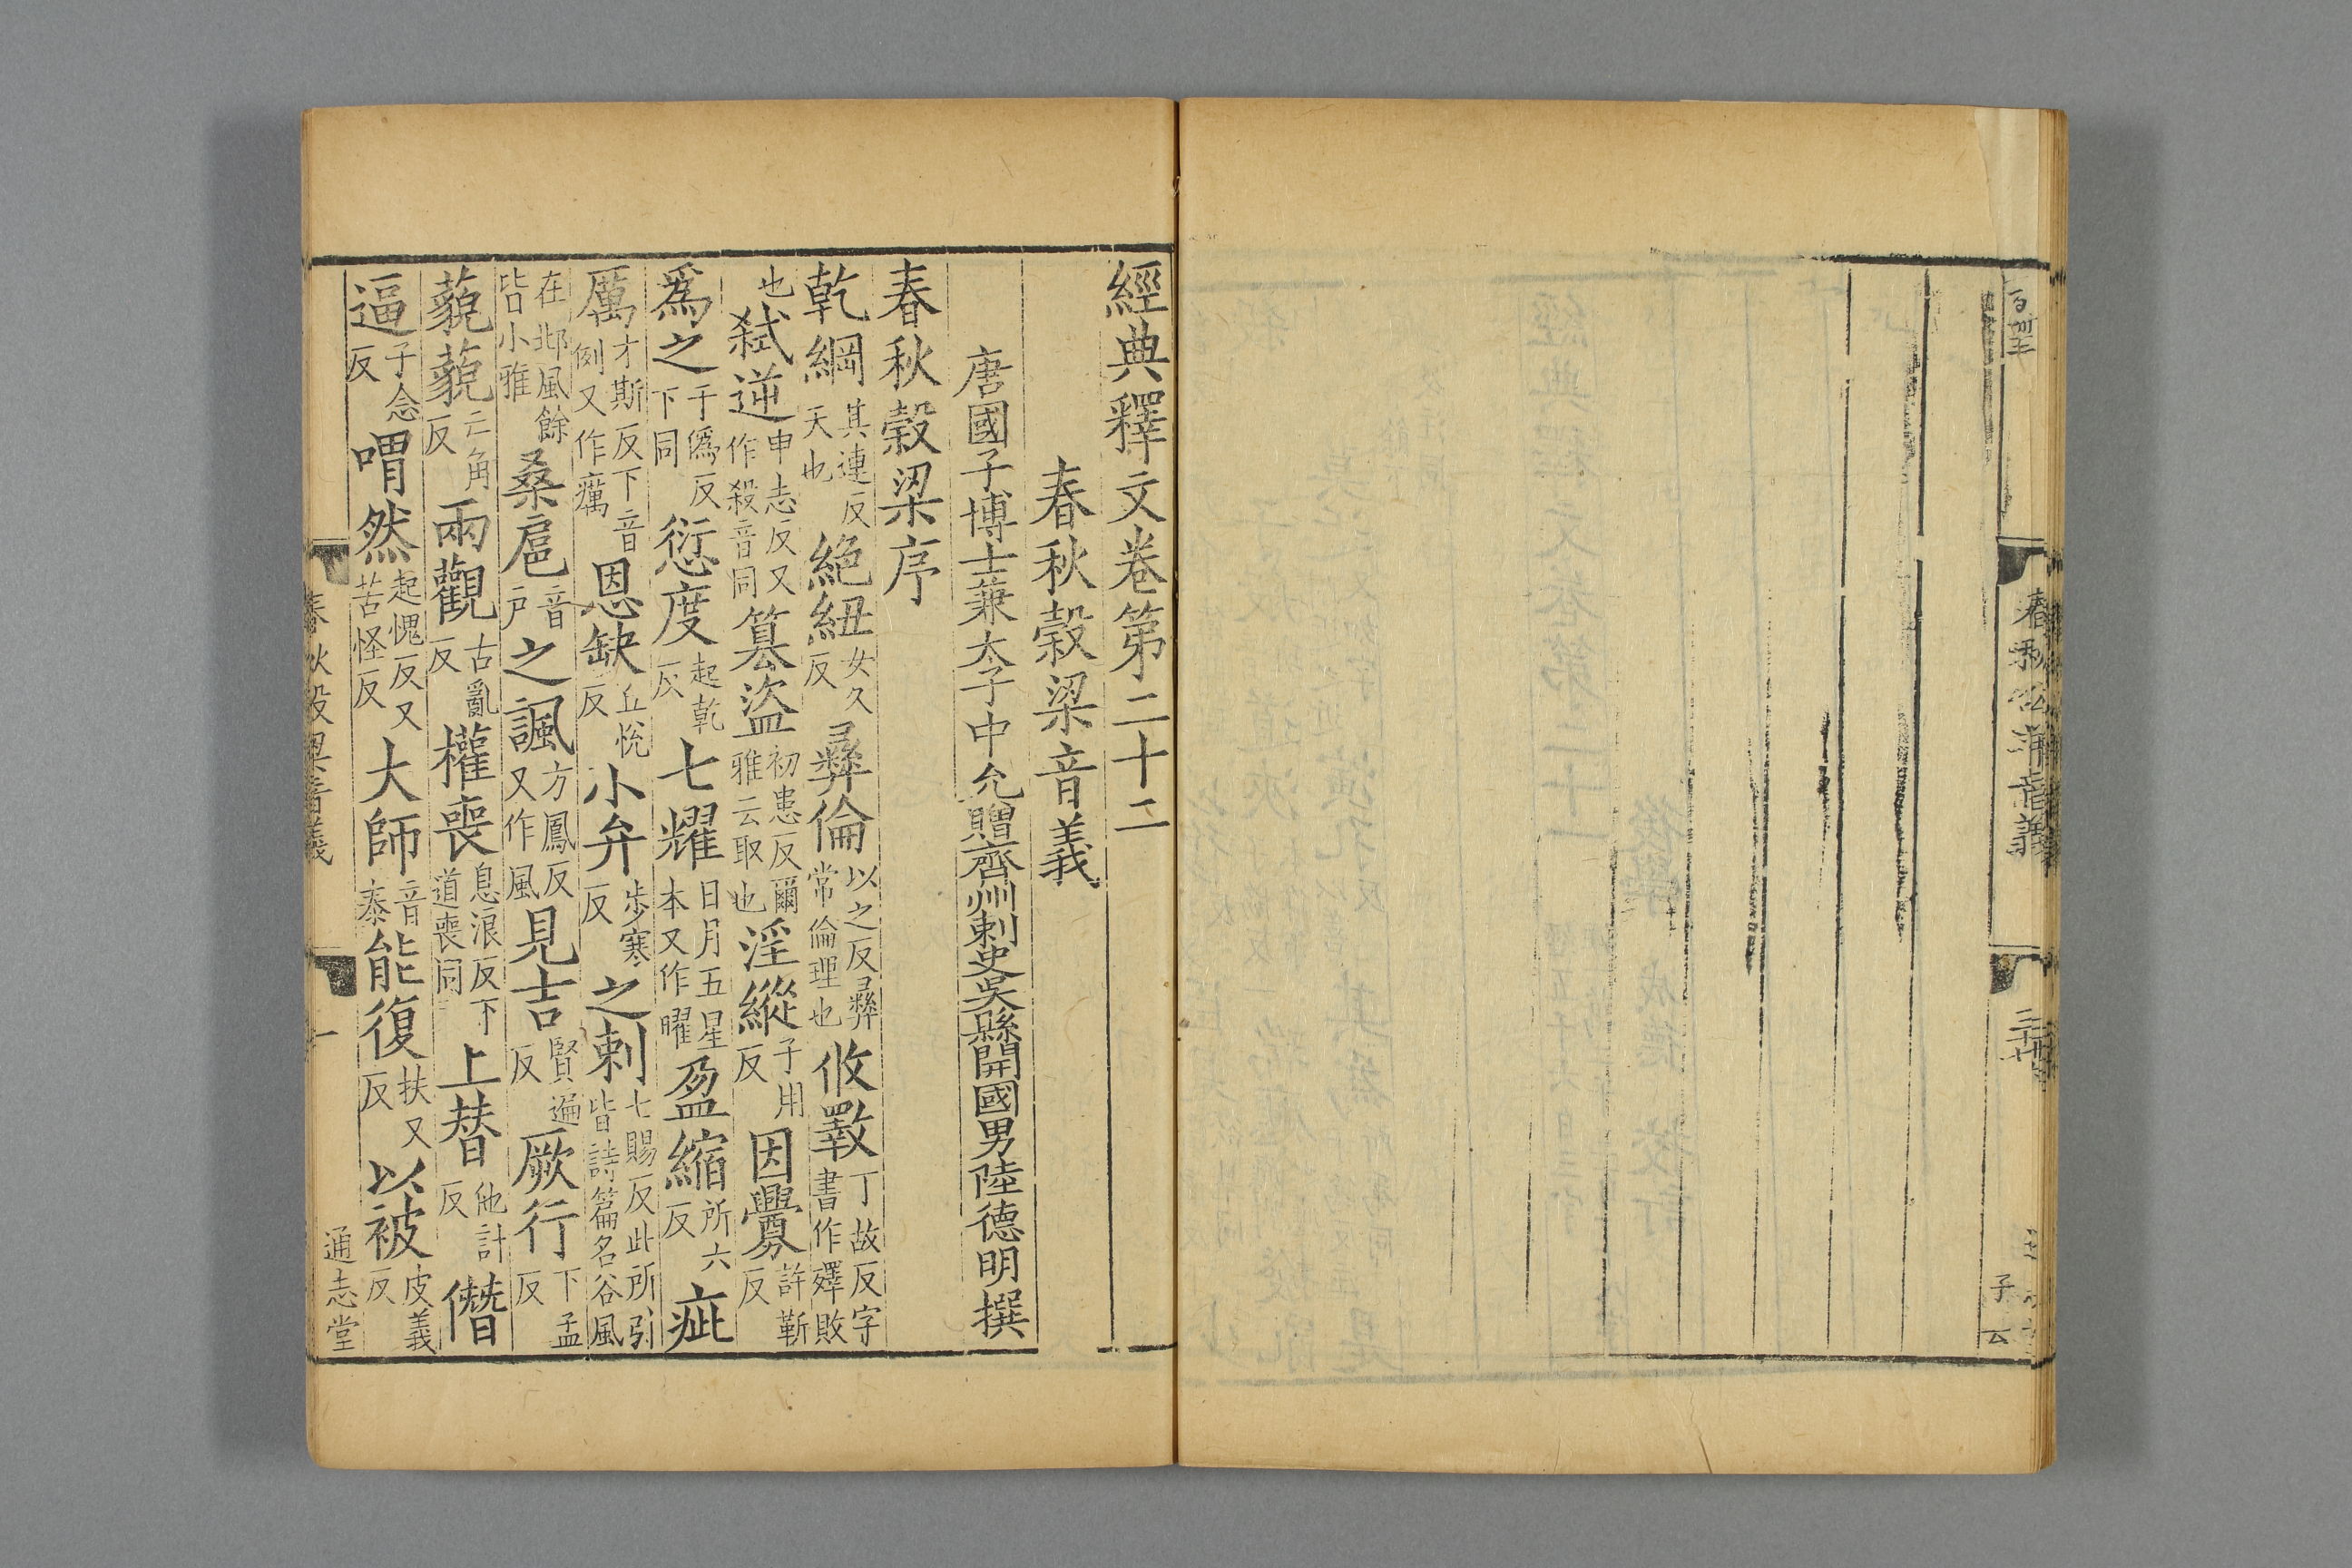 春秋公羊音義
經典釋文卷第二十二
春秋穀梁音義
唐國子博士兼太子中允贈齊州刺史吳縣開國男陸德明撰
春秋穀梁序
乾綱其連反天也絕紐女久反彝倫以之反彝常倫理也攸斁丁故反字書作殬敗
也弒逆申志反又作殺音同篡盜初患反爾雅云取也淫縱子用反因釁許靳反
爲之于僞反下同愆度起乾反七耀日月五星本又作曜盈縮所六反疵
厲才斯反下音例又作癘恩缺丘悅反小弁步寒反之刺七賜反此所引皆詩篇名谷風
在邶風餘皆小雅桑扈音戶之諷方鳳反又作風見吉賢遍反厥行下孟反
藐藐亡角反兩觀古亂反權喪息浪反下道喪同上替他計反僭
逼子念反喟然起愧反又苦怪反大師音泰能復扶又反以被皮義反
春秋穀梁音義
一
通志堂